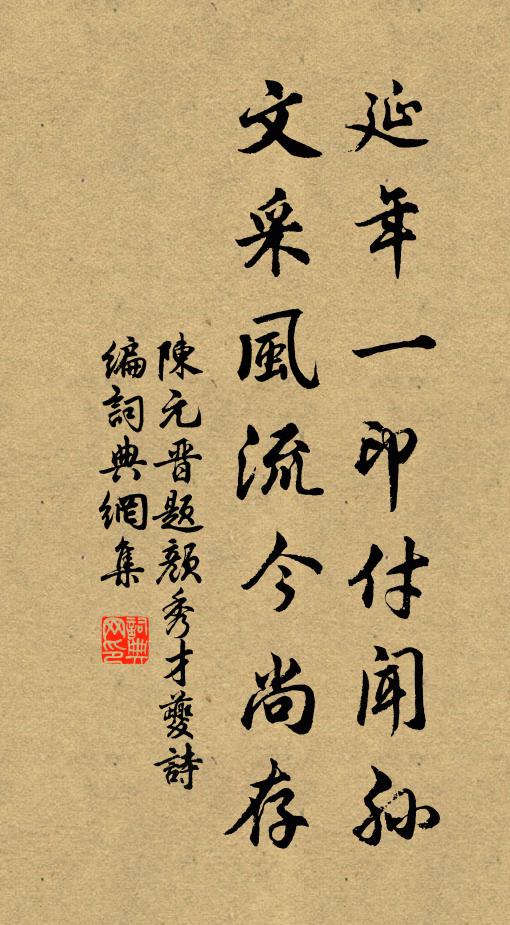 延年一印付闻孙
文采風流今尚存
陳元晋題顏秀才夔詩
编詞典網集
詞典网印